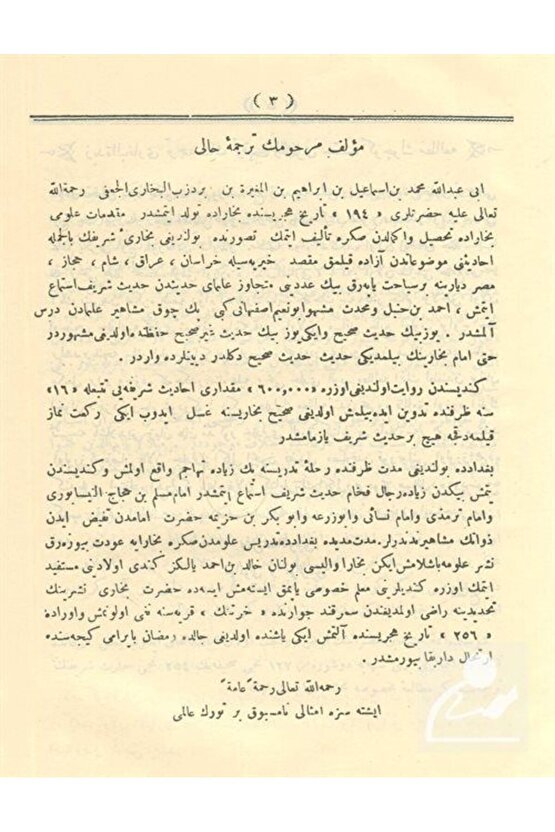 ( ٣ )
مؤلف مرحومك ترجمهٔ حالی
ابی عبدالله محمد بن اسماعیل بن ابراهیم بن المغیرة بن بردزب البخاری الجعفی رحمة الله
تعالی علیه حضرتلری «١٩٤» تاریخ هجریسنده بخاراده تولد ایتمشدر مقدمات علومی
بخاراده تحصیل واکمالدن صکره تألیف ایتمك تصورنده بولندیغی بخاریٔ شریفك بالجمله
احادیثنی موضوعاتدن آزاده قیلمق مقصد خیریه‌سیله خراسان ، عراق ، شام ، حجاز ،
مصر دیارینه بر سیاحت یاپه‌رق بیك عددینی متجاوز علمای حدیثدن حدیث شریف استماع
ایتمش ، احمد بن حنبل ومحدث مشهور ابونعیم اصفهانی کبی پك چوق مشاهیر علمادن درس
آلمشدر . یوزبیك حدیث صحیح وایکی یوز بیك حدیث غیرصحیح حفظنده اولدیغی مشهوردر
حتی امام بخارینك بیلمدیکی حدیث حدیث صحیح دکلدر دینلرده واردر .
کندیسندن روایت اولندیغی اوزره «٦٠٠,٠٠٠» مقداری احادیث شریفه‌یی تتبعله «١٦»
سنه ظرفنده تدوین ایده‌بیلمش اولدیغی صحیح بخاریسنه غسل ایدوب ایکی رکعت نماز
قیلمه‌دقجه هیچ بر حدیث شریف یازمامشدر
بغدادده بولندیغی مدت ظرفنده رحلهٔ تدریسنه پك زیاده تهاجم واقع اولمش وکندیسندن
یتمش بیکدن زیاده رجال فخام حدیث شریف استماع ایتمشدر امام مسلم بن حجاج النیسابوری
وامام ترمذی وامام نسائی وابوزرعه وابو بکر بن خزیمه حضرت امامدن تفیض ایدن
ذواتك مشاهیرندندرلر . مدت مدیده بغدادده تدریس علومدن صکره بخارایه عودت بیوره‌رق
نشر علومه باشلامش ایکن بخارا والیسی بولنان خالد بن احمد بالکز کندی اولادینی مستفید
ایتمك اوزره کندیلرینی معلم خصوصی یاپمق ایسته‌مش ایسه‌ده حضرت بخاری نشرینك
تحدیدینه راضی اولمدیغندن سمرقند جوارنده « خرتنك » قریه‌سنه نفی اولونمش واوراده
«٢٥٦» تاریخ هجریسنده آلتمش ایکی یاشنده اولدیغی حالده رمضان بایرامی کیجه‌سنده
ارتحال داربقا بیورمشدر .
رحمه الله تعالی رحمة عامة
ایشته سزه امثالی نامسبوق بر تورك عالمی